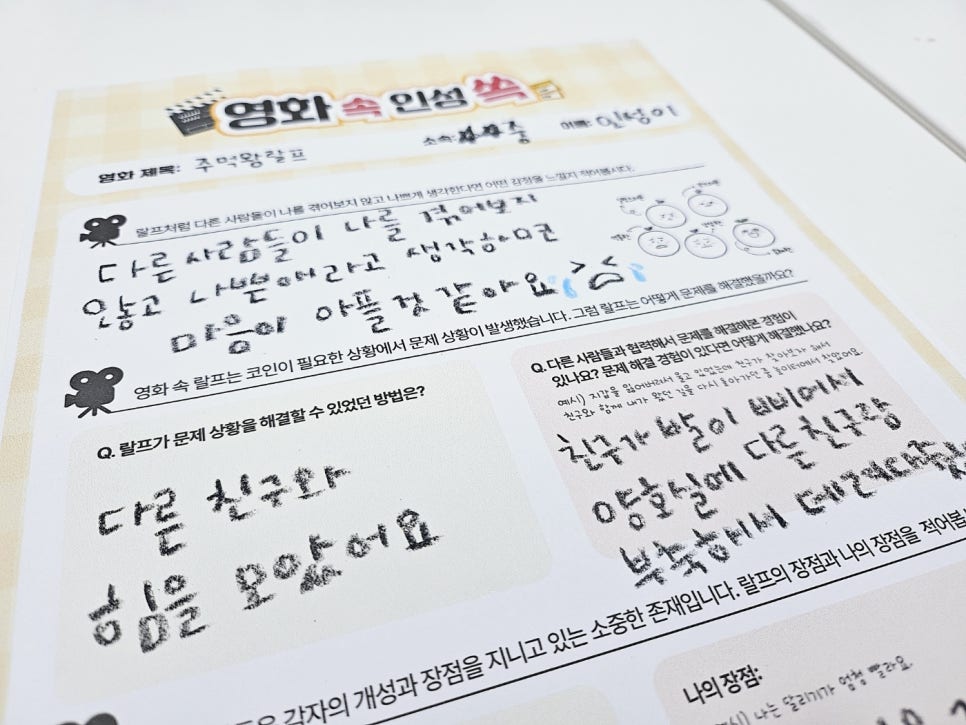 영화 속 인성 쏙
영화 제목: 주먹왕랄프 소속: 중 이름: 인성이
랄프처럼 다른 사람들이 나를 겪어보지 않고 나쁘게 생각한다면 어떤 감정을 느낄지 적어봅시다.
다른 사람들이 나를 겪어보지
안놓고 나쁜애라고 생각하면
마음이 아플것 같아요
영화 속 랄프는 코인이 필요한 상황에서 문제 상황이 발생했습니다. 그럼 랄프는 어떻게 문제를 해결했을까요?
Q. 랄프가 문제 상황을 해결할 수 있었던 방법은?
다른 친구와
힘을 모았어요
Q. 다른 사람들과 협력해서 문제를 해결해본 경험이
있나요? 문제 해결 경험이 있다면 어떻게 해결했나요?
예시) 지갑을 잃어버려서 울고 있었는데 친구가 찾아보자 해서
친구와 함께 내가 왔던 길을 다시 돌아가던 중 놀이터에서 찾았어요.
친구가 발이 삐어서
양호실에 다른친구랑
부축해서 데려다줬
각자의 개성과 장점을 지니고 있는 소중한 존재입니다. 랄프의 장점과 나의 장점을 적어봅
나의 장점:
예시) 나는 달리기가 엄청 빨라요.